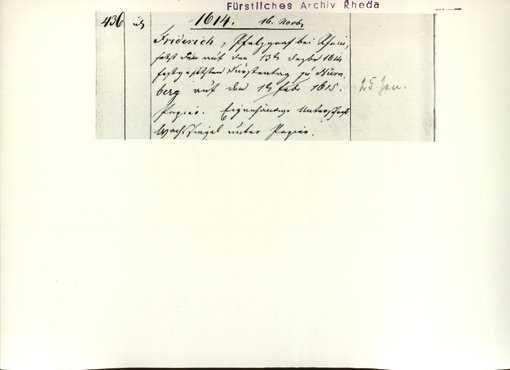 Fürstliches Archiv Rheda
436 1614. 16. Novbr.
Friderich, Pfalzgraf bei Rhein,
setzt den auf den 13t Dezbr 1614
festgesetzten Fürstentag zu Nürn-
berg auf den 1t Febr. 1615.
25 Jan.
Papier. Eigenhändige Unterschrift
Wachssiegel unter Papier.